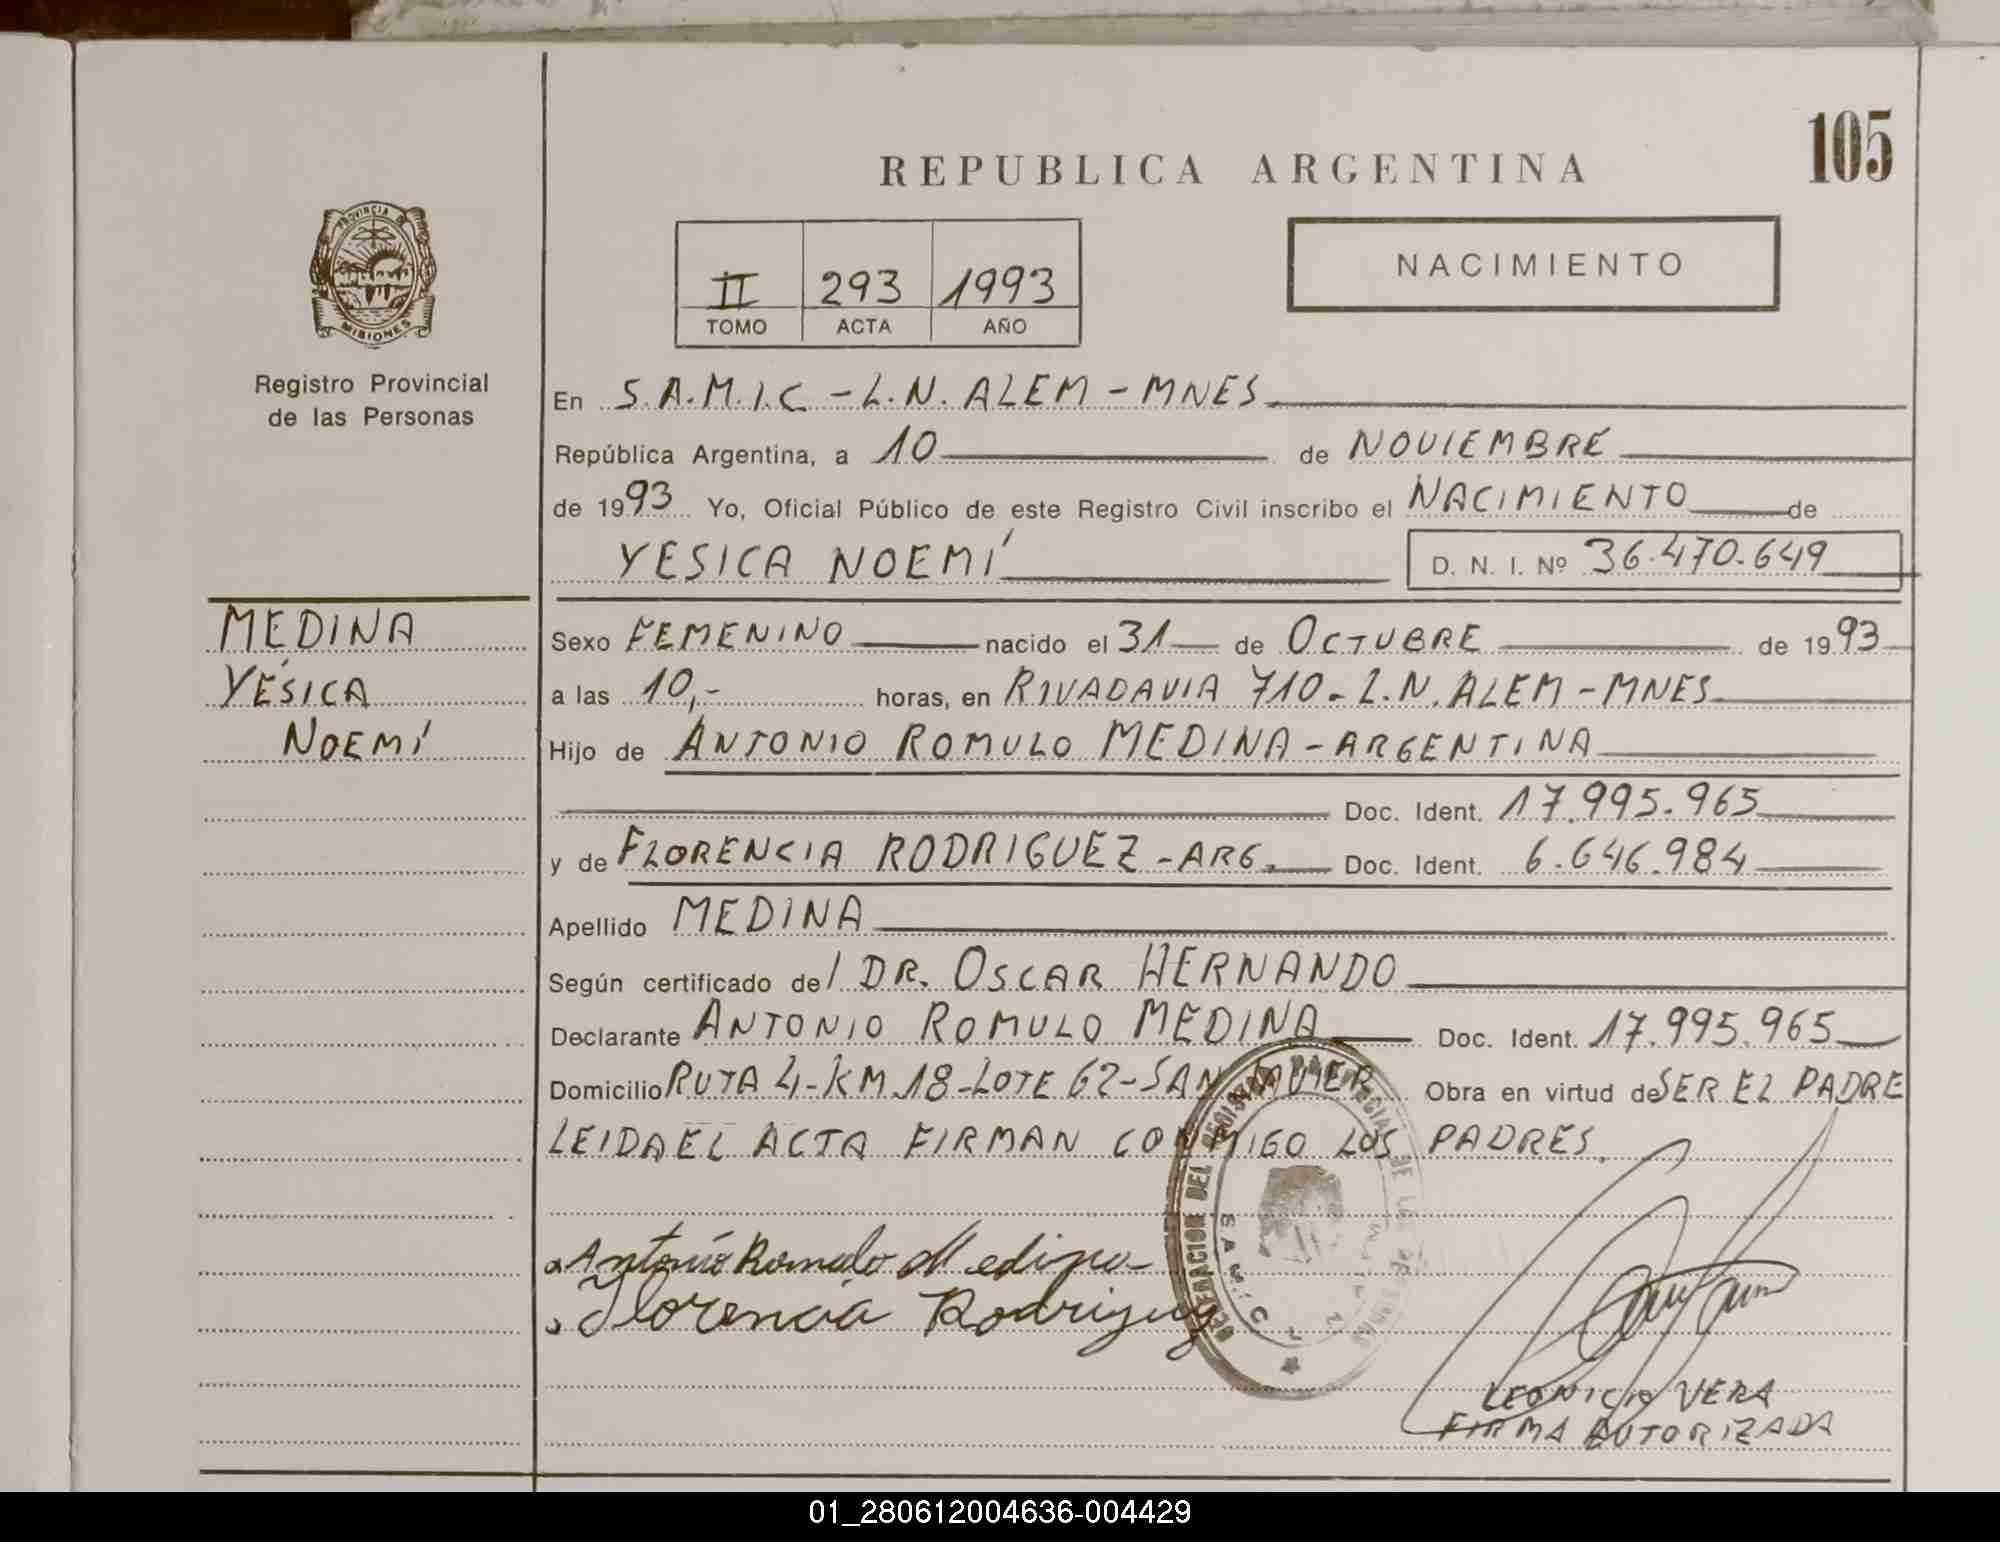 105
REPUBLICA ARGENTINA
PROVINCIA DE
MISIONES
Registro Provincial
de las Personas
II 293 1993
TOMO ACTA AÑO
NACIMIENTO
En S.A.M.I.C - L.N. ALEM - MNES
República Argentina, a 10 de NOVIEMBRE
de 1993 Yo, Oficial Público de este Registro Civil inscribo el NACIMIENTO de
YESICA NOEMÍ D. N. I. Nº 36.470.649
MEDINA
YÉSICA
NOEMÍ
Sexo FEMENINO nacido el 31 de OCTUBRE de 1993
a las 10,- horas, en RIVADAVIA 710 - L.N. ALEM - MNES
Hijo de ANTONIO ROMULO MEDINA - ARGENTINA
Doc. Ident. 17.995.965
y de FLORENCIA RODRIGUEZ - ARG. Doc. Ident. 6.646.984
Apellido MEDINA
Según certificado del DR. OSCAR HERNANDO
Declarante ANTONIO ROMULO MEDINA Doc. Ident. 17.995.965
Domicilio RUTA 4 - KM.18 - LOTE 62 - SAN JAVIER Obra en virtud de SER EL PADRE
LEIDA EL ACTA FIRMAN CONMIGO LOS PADRES.
Antonio Romulo Medina
Florencia Rodriguez
DELEGACION DEL REGISTRO PROVINCIAL DE LAS PERSONAS
LEONICIO VERA
FIRMA AUTORIZADA
01_280612004636-004429